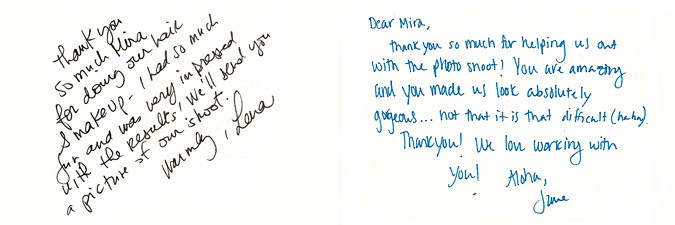 thank you
so much Mira
for doing our hair
& makeup. I had so much
fun and was very impressed
with the results, we'll send you
a picture of our shoot.
Warmly, Lena
Dear Mira,
thank you so much for helping us out
with the photo shoot! You are amazing
and you made us look absolutely
gorgeous... not that it is that difficult (haha).
Thankyou! We love working with
you! Aloha,
Jane